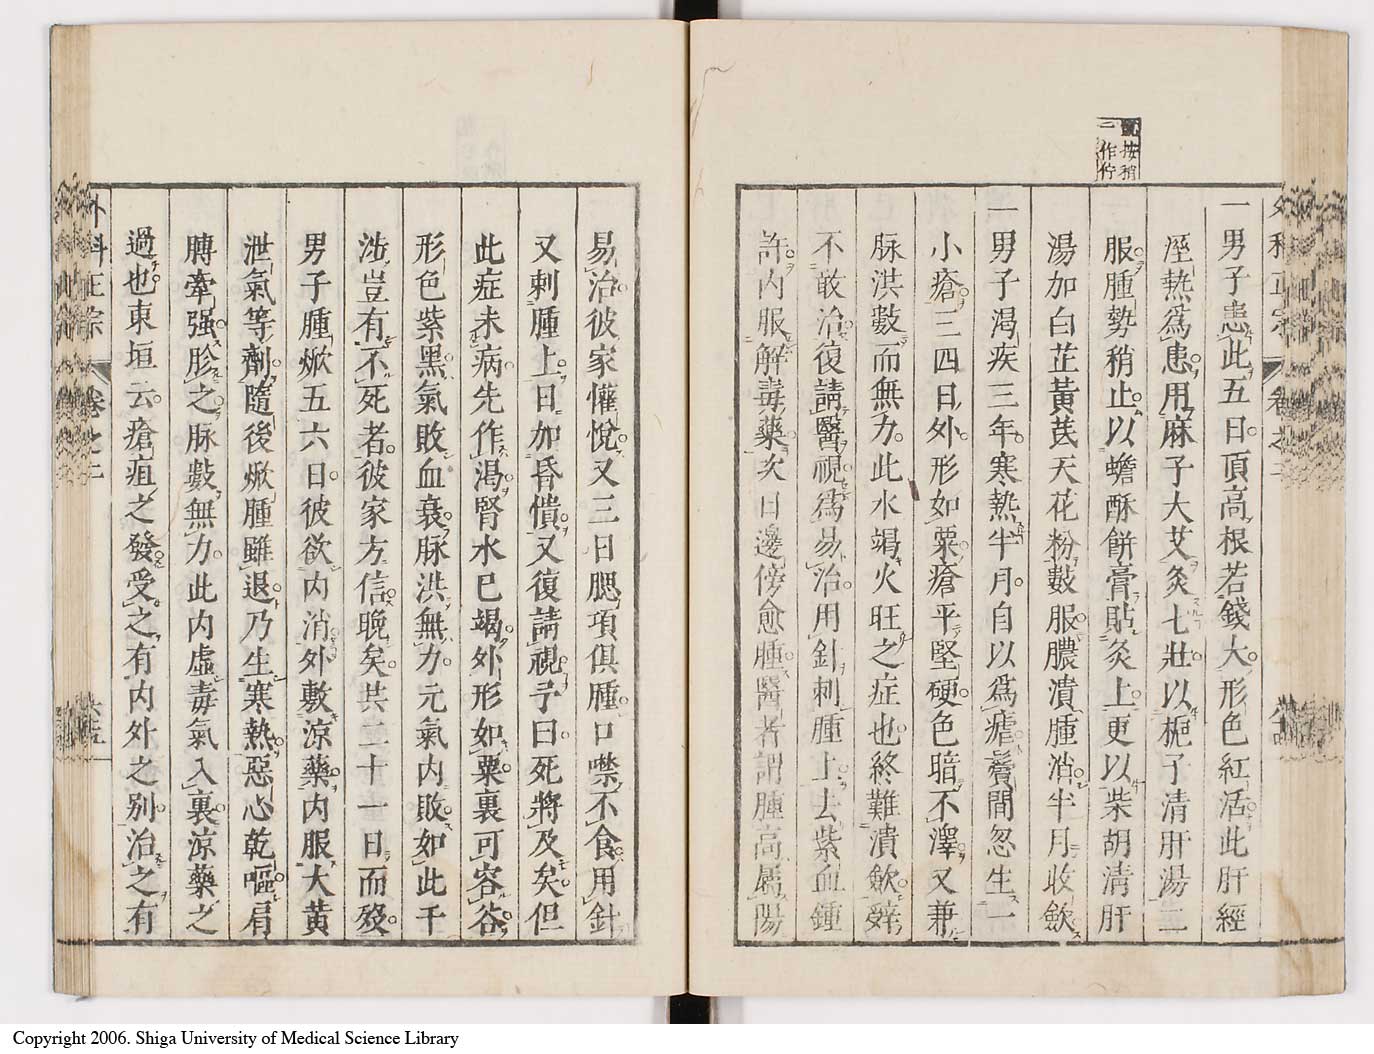 一男子患此五日頂高根若錢大形色紅活此肝經
溼熱爲患用麻子大艾灸七壯以梔子清肝湯二
服腫勢稍止以蟾酥餅膏貼灸上更以柴胡清肝
湯加白芷黃芪天花粉數服膿潰腫消半月收斂
一男子渴疾三年寒熱半月自以爲瘧鬢間忽生一
小瘡三四日外形如粟瘡平堅硬色暗不澤又兼
脉洪數而無力此水竭火旺之症也終難潰斂辤
不敢治復請醫視爲易治用針刺腫上去紫血鍾
許內服解毒藥次日邊傍愈腫醫者謂腫高屬陽
易治彼家懽悅又三日腮項俱腫口噤不食用針
又刺腫上日加昏憒又復請視予曰死將及矣但
此症未病先作渴腎水已竭外形如粟裏可容谷
形色紫黑氣敗血衰脉洪無力元氣內敗如此干
涉豈有不死者彼家方信晚矣共二十一日而歿
男子腫焮五六日彼欲內消外敷涼藥內服大黃
泄氣等劑隨後焮腫雖退乃生寒熱惡心乾嘔肩
膊牽强胗之脉數無力此內虛毒氣入裏涼藥之
過也東垣云瘡疽之發受之有內外之別治之有
外科正宗 卷之二
Copyright 2006. Shiga University of Medical Science Library